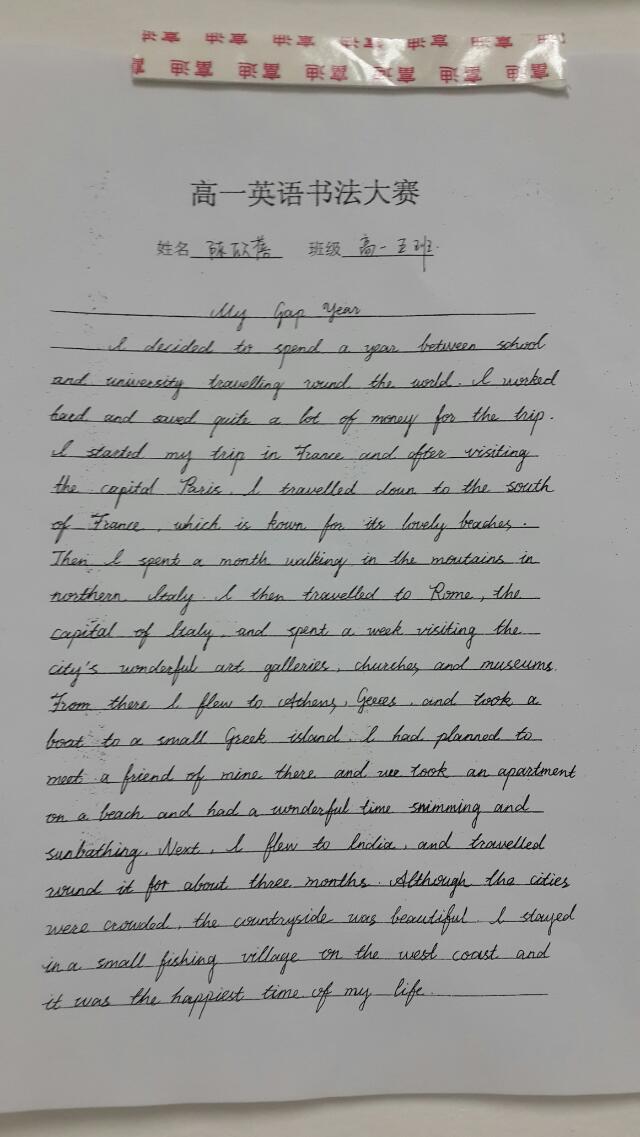 富迪 富迪 富迪 富迪 富迪 富迪
富迪 富迪 富迪 富迪 富迪 富迪
高一英语书法大赛
姓名 陈欣蓓 班级 高一五班
My Gap Year
I decided to spend a year between school
and university travelling round the world. I worked
hard and saved quite a lot of money for the trip.
I started my trip in France and after visiting
the capital Paris, I travelled down to the south
of France, which is kown for its lovely beaches.
Then I spent a month walking in the moutains in
northern Italy. I then travelled to Rome, the
capital of Italy, and spent a week visiting the
city's wonderful art galleries, churches, and museums.
From there I flew to Athens, Geeces, and took a
boat to a small Greek island. I had planned to
meet a friend of mine there and we took an apartment
on a beach and had a wonderful time snimming and
sunbathing. Next, I flew to India, and travelled
round it for about three months. Although the cities
were crowded, the countryside was beautiful. I stayed
in a small fishing village on the west coast and
it was the happiest time of my life.